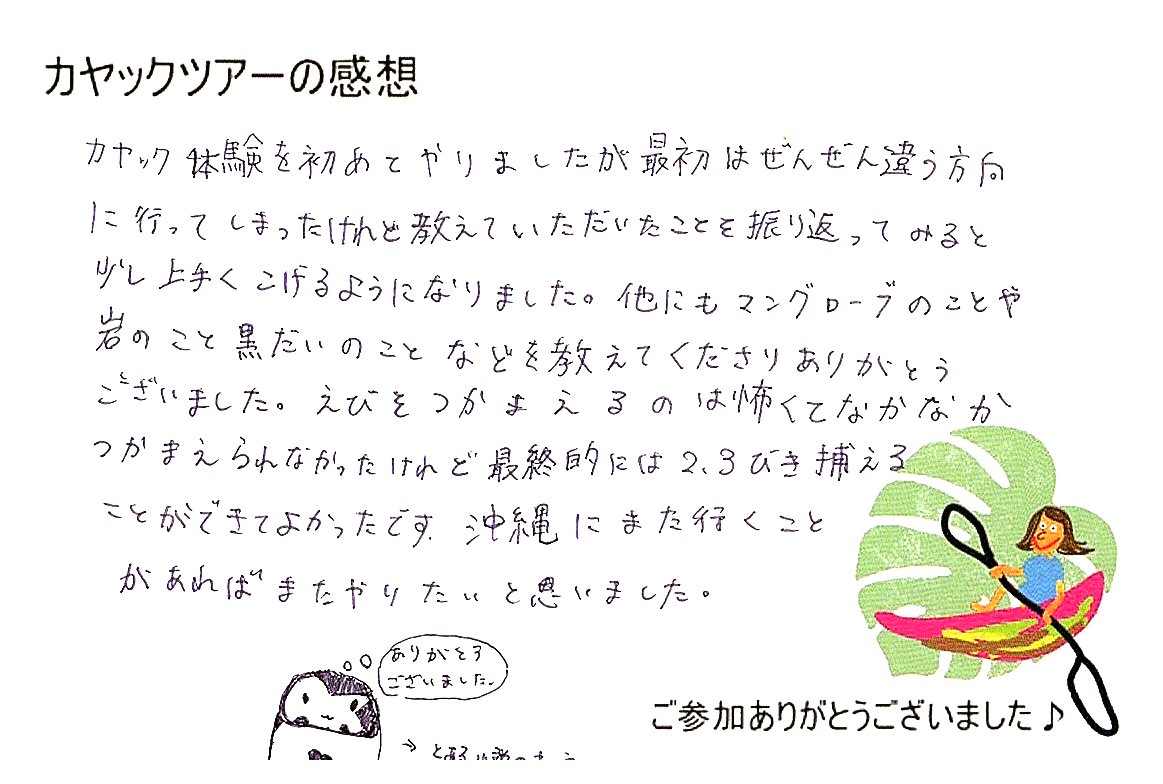 カヤックツアーの感想
カヤック体験を初めてやりましたが最初はぜんぜん違う方向
に行ってしまったけれど教えていただいたことを振り返ってみると
少し上手くこげるようになりました。他にもマングローブのことや
岩のこと黒だいのことなどを教えてくださりありがとう
ございました。えびをつかまえるのは怖くてなかなか
つかまえられなかったけれど最終的には2、3びき捕える
ことができてよかったです。沖縄にまた行くこと
があればまたやりたいと思いました。
ありがとう
ございました。
ご参加ありがとうございました♪